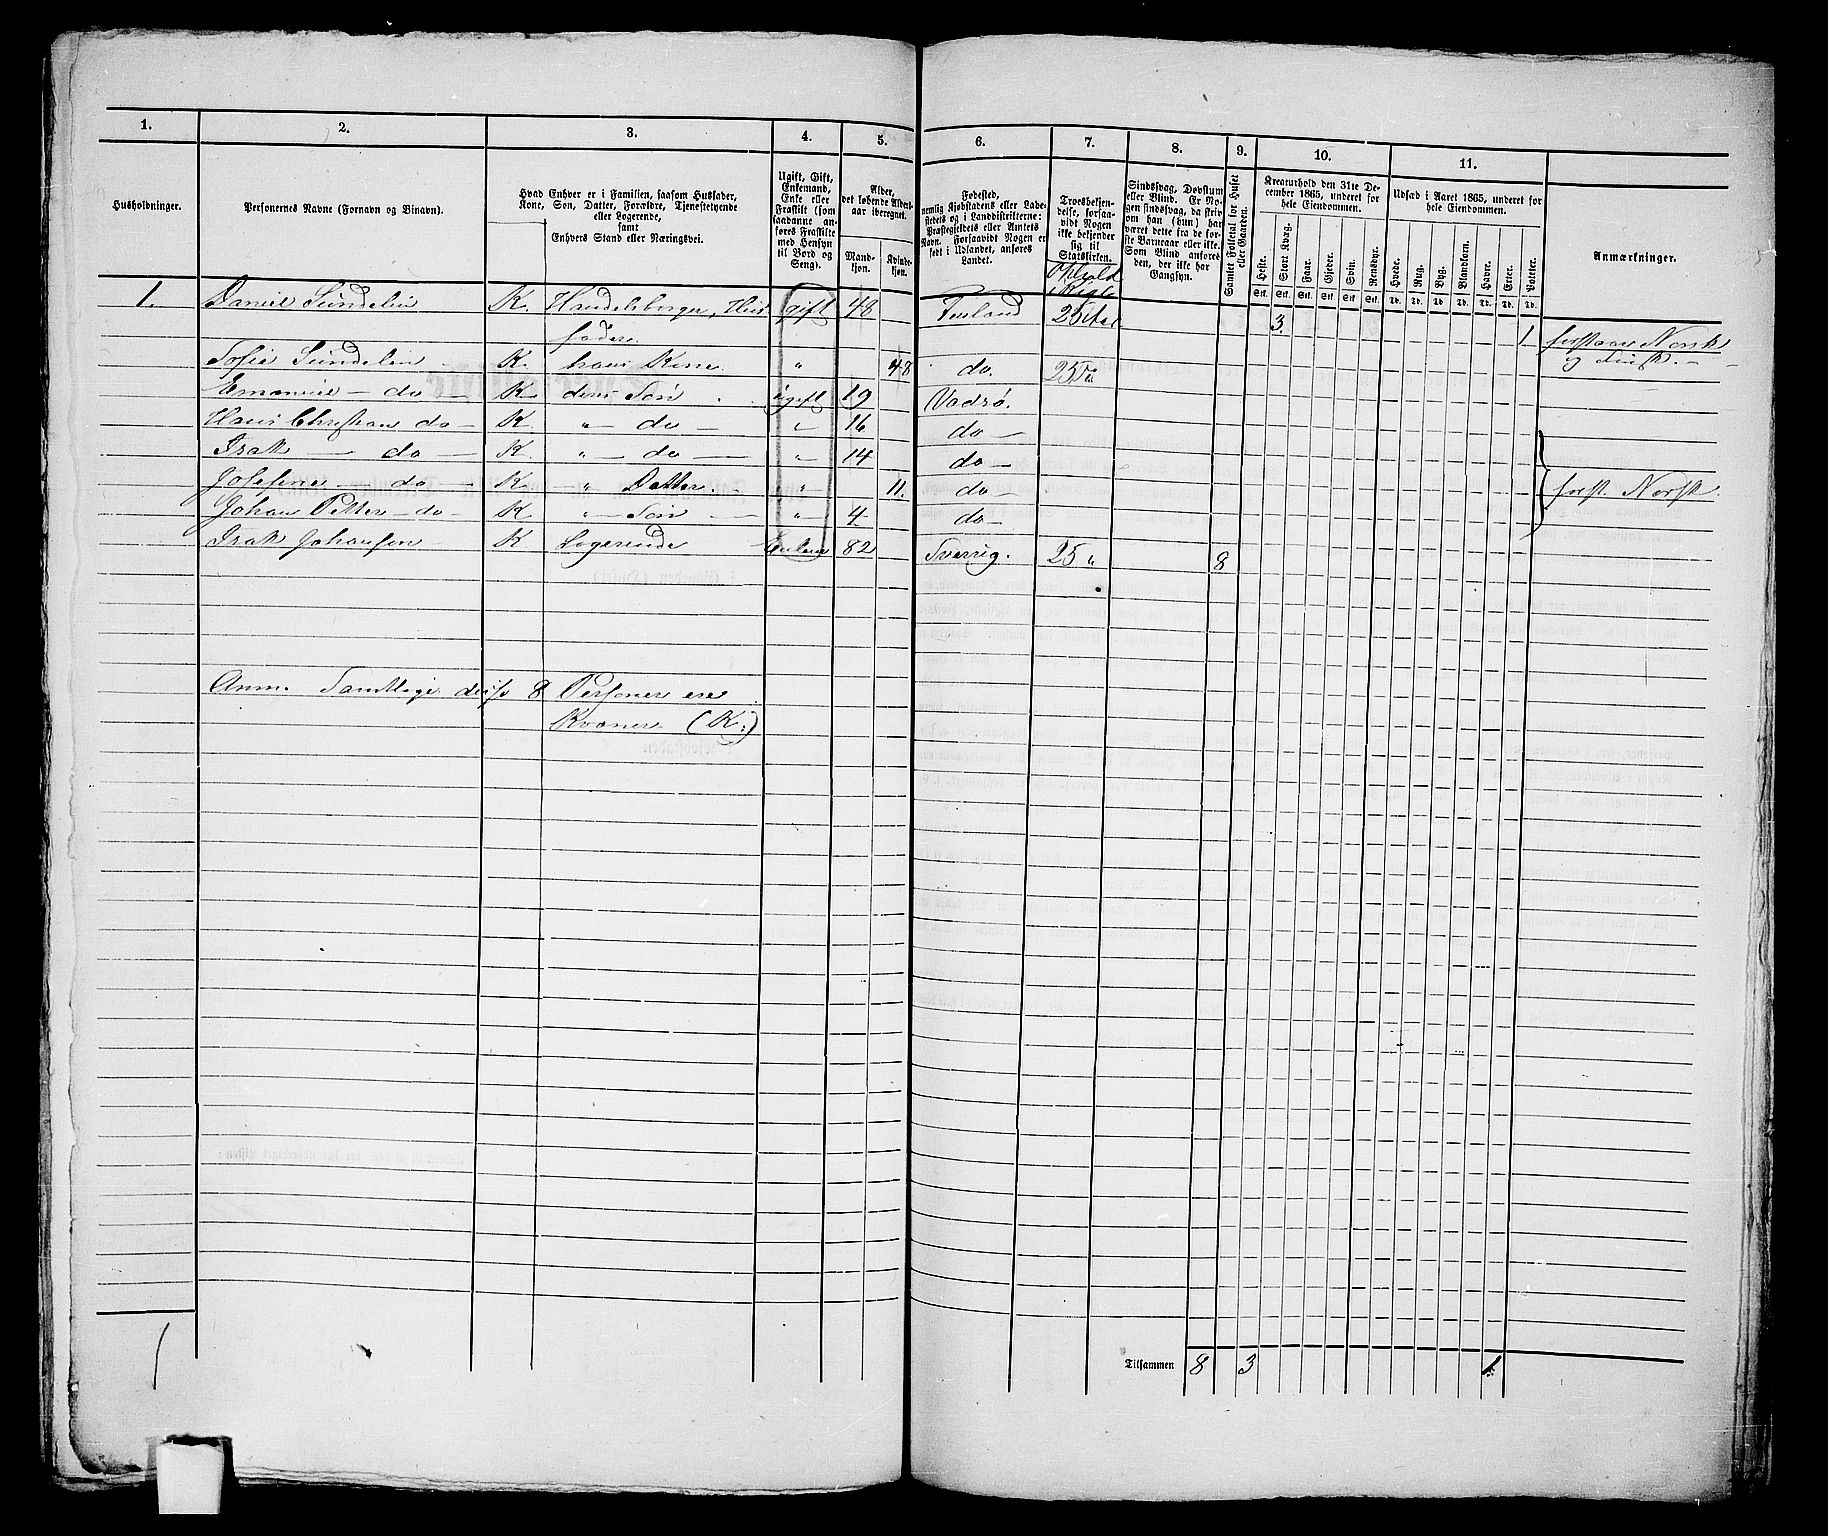 1. 2. 3. 4. 5. 6. 7. 8. 9. 10. 11.
Husholdninger.
Personernes Navne (Fornavn og Binavn).
Hvad Enhver er i Familien, saasom Husfader,
Kone, Søn, Datter, Forældre, Tjenestetyende
eller Logerende,
samt
Enhvers Stand eller Næringsvei.
Ugift, Gift,
Enkemand,
Enke eller
Fraskilt (som
saadanne an-
føres Fraskilte
med Hensyn
til Bord og
Seng).
Alder,
det løbende Alders-
aar iberegnet.
Mand-
kjøn.
Kvinde-
kjøn.
Fødested,
nemlig Kjøbstadens eller Lade-
stedets og i Landdistrikterne:
Præstegjeldets eller Amtets
Navn. Forsaavidt Nogen er
født i Udlandet, anføres
Landet.
Troesbekjen-
delse, forsaa-
vidt Nogen
ikke bekjender
sig til
Statskirken.
Ophold
i Rige
Sindssvag, Døvstum
eller Blind. Er No-
gen sindssvag, da skriv
om han (hun) har
været dette fra de før-
ste Barneaar eller ikke.
Som Blind anføres
den, der ikke har
Gangsyn.
Samlet Folketal for Huset
eller Gaarden.
Kreaturhold den 31te De-
cember 1865, underet for
hele Eiendommen.
Heste. Stort Kvæg. Faar. Gjeder. Svin. Rensdyr.
Stk. Stk. Stk. Stk. Stk. Stk.
Udsæd i Aaret 1865, underet for
hele Eiendommen.
Hvede. Rug. Byg. Blandkorn. Havre. Erter. Poteter.
Td. Td. Td. Td. Td. Td. Td.
Anmærkninger.
1. Daniel Sundelin K. Handelsborger, Hus- gift 48 Finland 25 3. 1 forstaar Norsk
fader
Sofie Sundelin K. hans Kone. " 48 do. 25 og Finsk
Emanuel - do K dens Søn ugift 19 Vadsø.
Hans Christian do - K " - do - " 16 do -
Isak - do - K. " - do - " 14 do -
Josefine - do - K - " Datter. " 11. do - forst. Norsk
Johan Petter - do - K " - Søn " 4 do -
Isak Johansen K Logerende 82 Sverrig. 25 " 8
Anm. Samtlige disse 8 Personer ere
Kvæner (K.)
Tilsammen 8 3 1